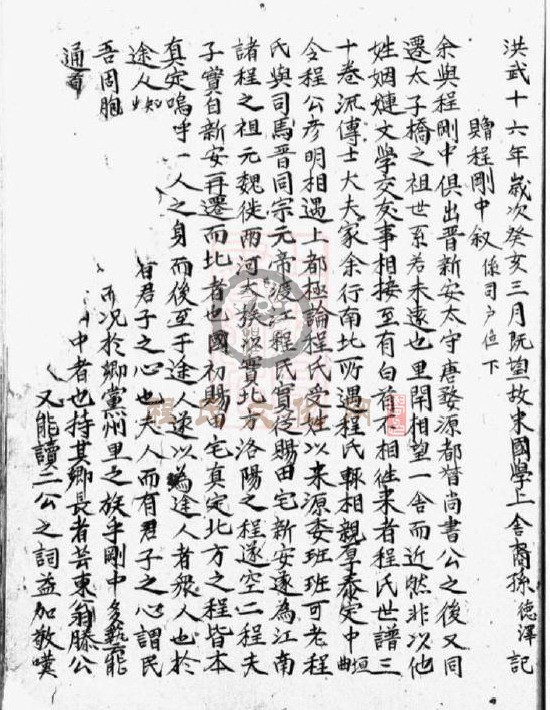 洪武十六年歲次癸亥三月既望故宋國學上舍裔孫德澤記
贈程剛中叙 係司户位下
余與程剛中俱出晋新安太守唐婺源都督尚書公之後又同
遷太子橋之祖世系若未遠也里閈相望一舍而近然非以他
姓姻婕文學交友事相接至有白首不相徃来者程氏世譜三
十卷流傳士大夫家余行南北所遇程氏輒相親厚泰定中曲垣
令程公彦明相遇上都極論程氏受姓以来源委班班可考程
氏與司馬晋同宗元帝渡江程氏實從賜田宅新安遂為江南
諸程之祖元魏徙兩河大族以實北方洛陽之程遂空二程夫
子實自新安再遷而北者也國初賜田宅真定北方之程皆本
真定嗚呼一人之身而後至于途人遂以為途人者衆人也於
途人 有君子之心也夫人而有君子之心謂民
吾同胞 而况於鄉黨州里之族乎剛中多藝能
通 中者也持其鄉長者芸東翁滕公
又能讀二公之詞益加敬嘆